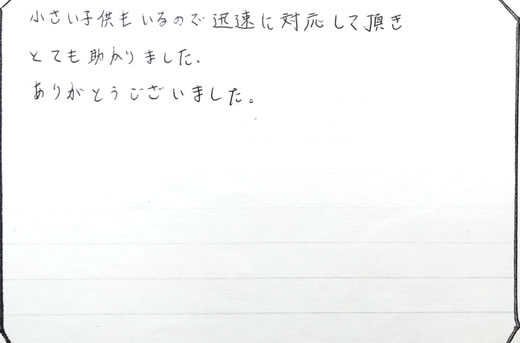 小さい子供もいるので迅速に対応して頂き
とても助かりました.
ありがとうございました。